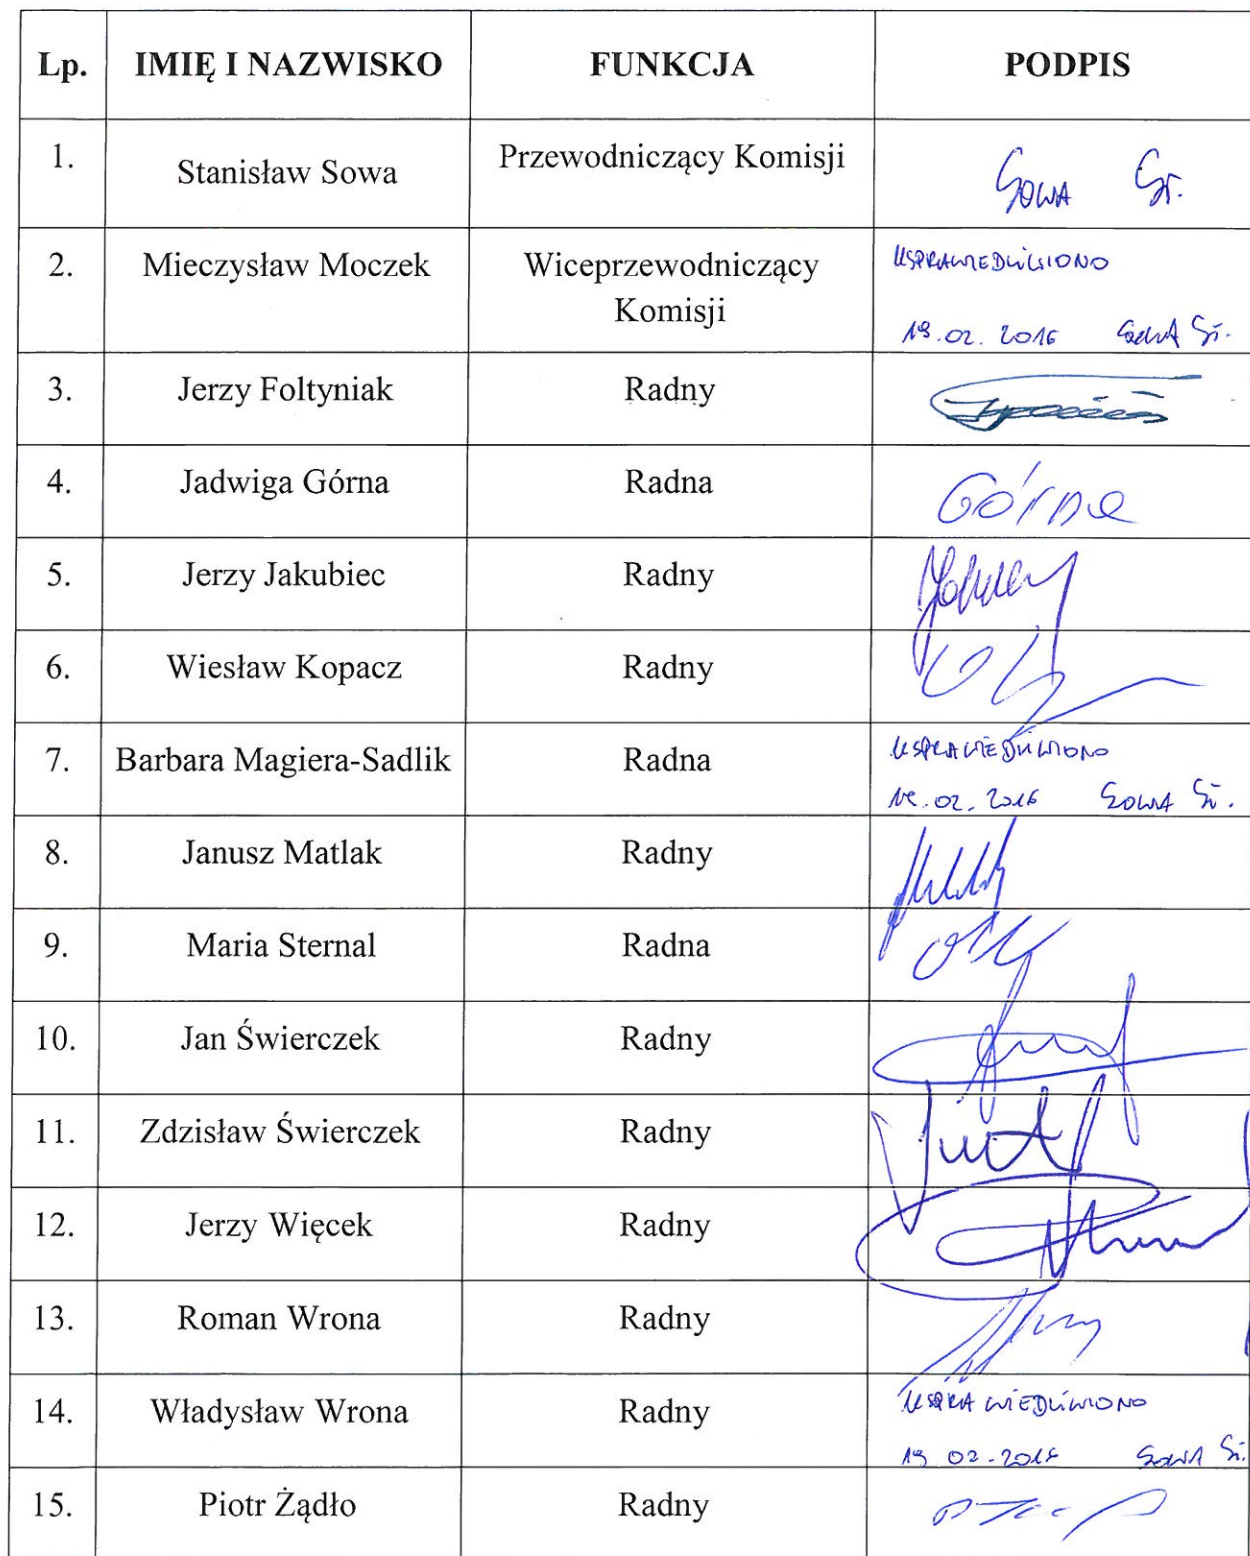 Lp. IMIĘ I NAZWISKO FUNKCJA PODPIS
1. Stanisław Sowa Przewodniczący Komisji SOWA St.
2. Mieczysław Moczek Wiceprzewodniczący Komisji USPRAWIEDLIWIONO
19.02.2016 SOWA St.
3. Jerzy Foltyniak Radny
4. Jadwiga Górna Radna Górna
5. Jerzy Jakubiec Radny
6. Wiesław Kopacz Radny
7. Barbara Magiera-Sadlik Radna USPRAWIEDLIWIONO
02.2016 SOWA St.
8. Janusz Matlak Radny
9. Maria Sternal Radna
10. Jan Świerczek Radny
11. Zdzisław Świerczek Radny
12. Jerzy Więcek Radny
13. Roman Wrona Radny
14. Władysław Wrona Radny USPRAWIEDLIWIONO
19 02-2016 SOWA St.
15. Piotr Żądło Radny